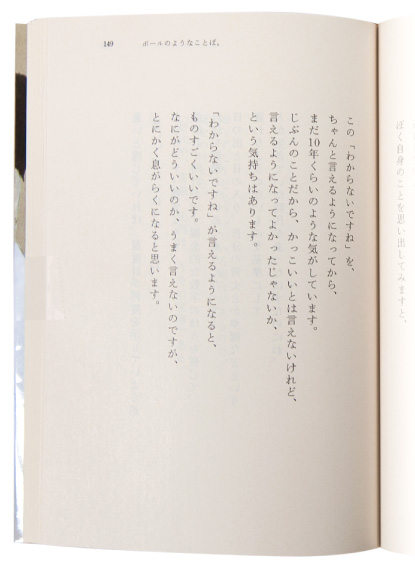 ぼく自身のことを思い出してみますと、
149 ボールのようなことば。
この「わからないですね」を、
ちゃんと言えるようになってから、
まだ10年くらいのような気がしています。
じぶんのことだから、かっこいいとは言えないけれど、
言えるようになってよかったじゃないか、
という気持ちはあります。
「わからないですね」が言えるようになると、
ものすごくいいです。
なにがどういいのか、うまく言えないのですが、
とにかく息がらくになると思います。